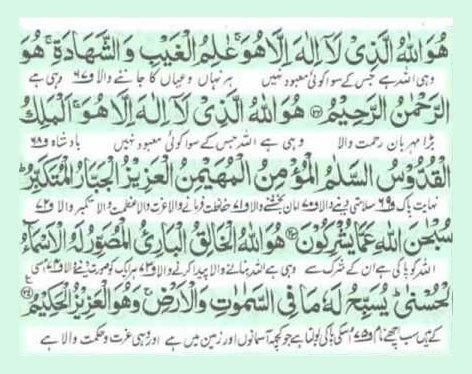 هُوَ اللّٰهُ الَّذِیْ لَاۤ اِلٰهَ اِلَّا هُوَ ۚ عٰلِمُ الْغَیْبِ وَ الشَّهَادَةِ ۚ هُوَ
وہی اللہ ہے جس کے سوا کوئی معبود نہیں ہر نہاں و عیاں کا جاننے والا ف۶۷ وہی ہے
الرَّحْمٰنُ الرَّحِیْمُ ﴿۲۲﴾ هُوَ اللّٰهُ الَّذِیْ لَاۤ اِلٰهَ اِلَّا هُوَ ۚ اَلْمَلِكُ
بڑا مہربان رحمت والا وہی ہے اللہ جس کے سوا کوئی معبود نہیں بادشاہ ف۶۸
الْقُدُّوْسُ السَّلٰمُ الْمُؤْمِنُ الْمُهَیْمِنُ الْعَزِیْزُ الْجَبَّارُ الْمُتَكَبِّرُ ؕ
نہایت پاک ف۶۹ سلامتی دینے والا ف۷۰ امان بخشنے والا ف۷۱ حفاظت فرمانے والا عزت والا عظمت والا تکبر والا ف۷۲
سُبْحٰنَ اللّٰهِ عَمَّا یُشْرِكُوْنَ ﴿۲۳﴾ هُوَ اللّٰهُ الْخَالِقُ الْبَارِئُ الْمُصَوِّرُ لَهُ الْاَسْمَآءُ
اللہ کو پاکی ہے ان کے شرک سے وہی ہے اللہ بنانے والا پیدا کرنے والا ف۷۳ ہر ایک کو صورت دینے والا ف۷۴ اسی
الْحُسْنٰی ؕ یُسَبِّحُ لَهٗ مَا فِی السَّمٰوٰتِ وَ الْاَرْضِ ۚ وَ هُوَ الْعَزِیْزُ الْحَكِیْمُ ﴿۲۴﴾
کے ہیں سب اچھے نام ف۷۵ اسکی پاکی بولتا ہے جو کچھ آسمانوں اور زمین میں ہے اور وہی عزت و حکمت والا ہے